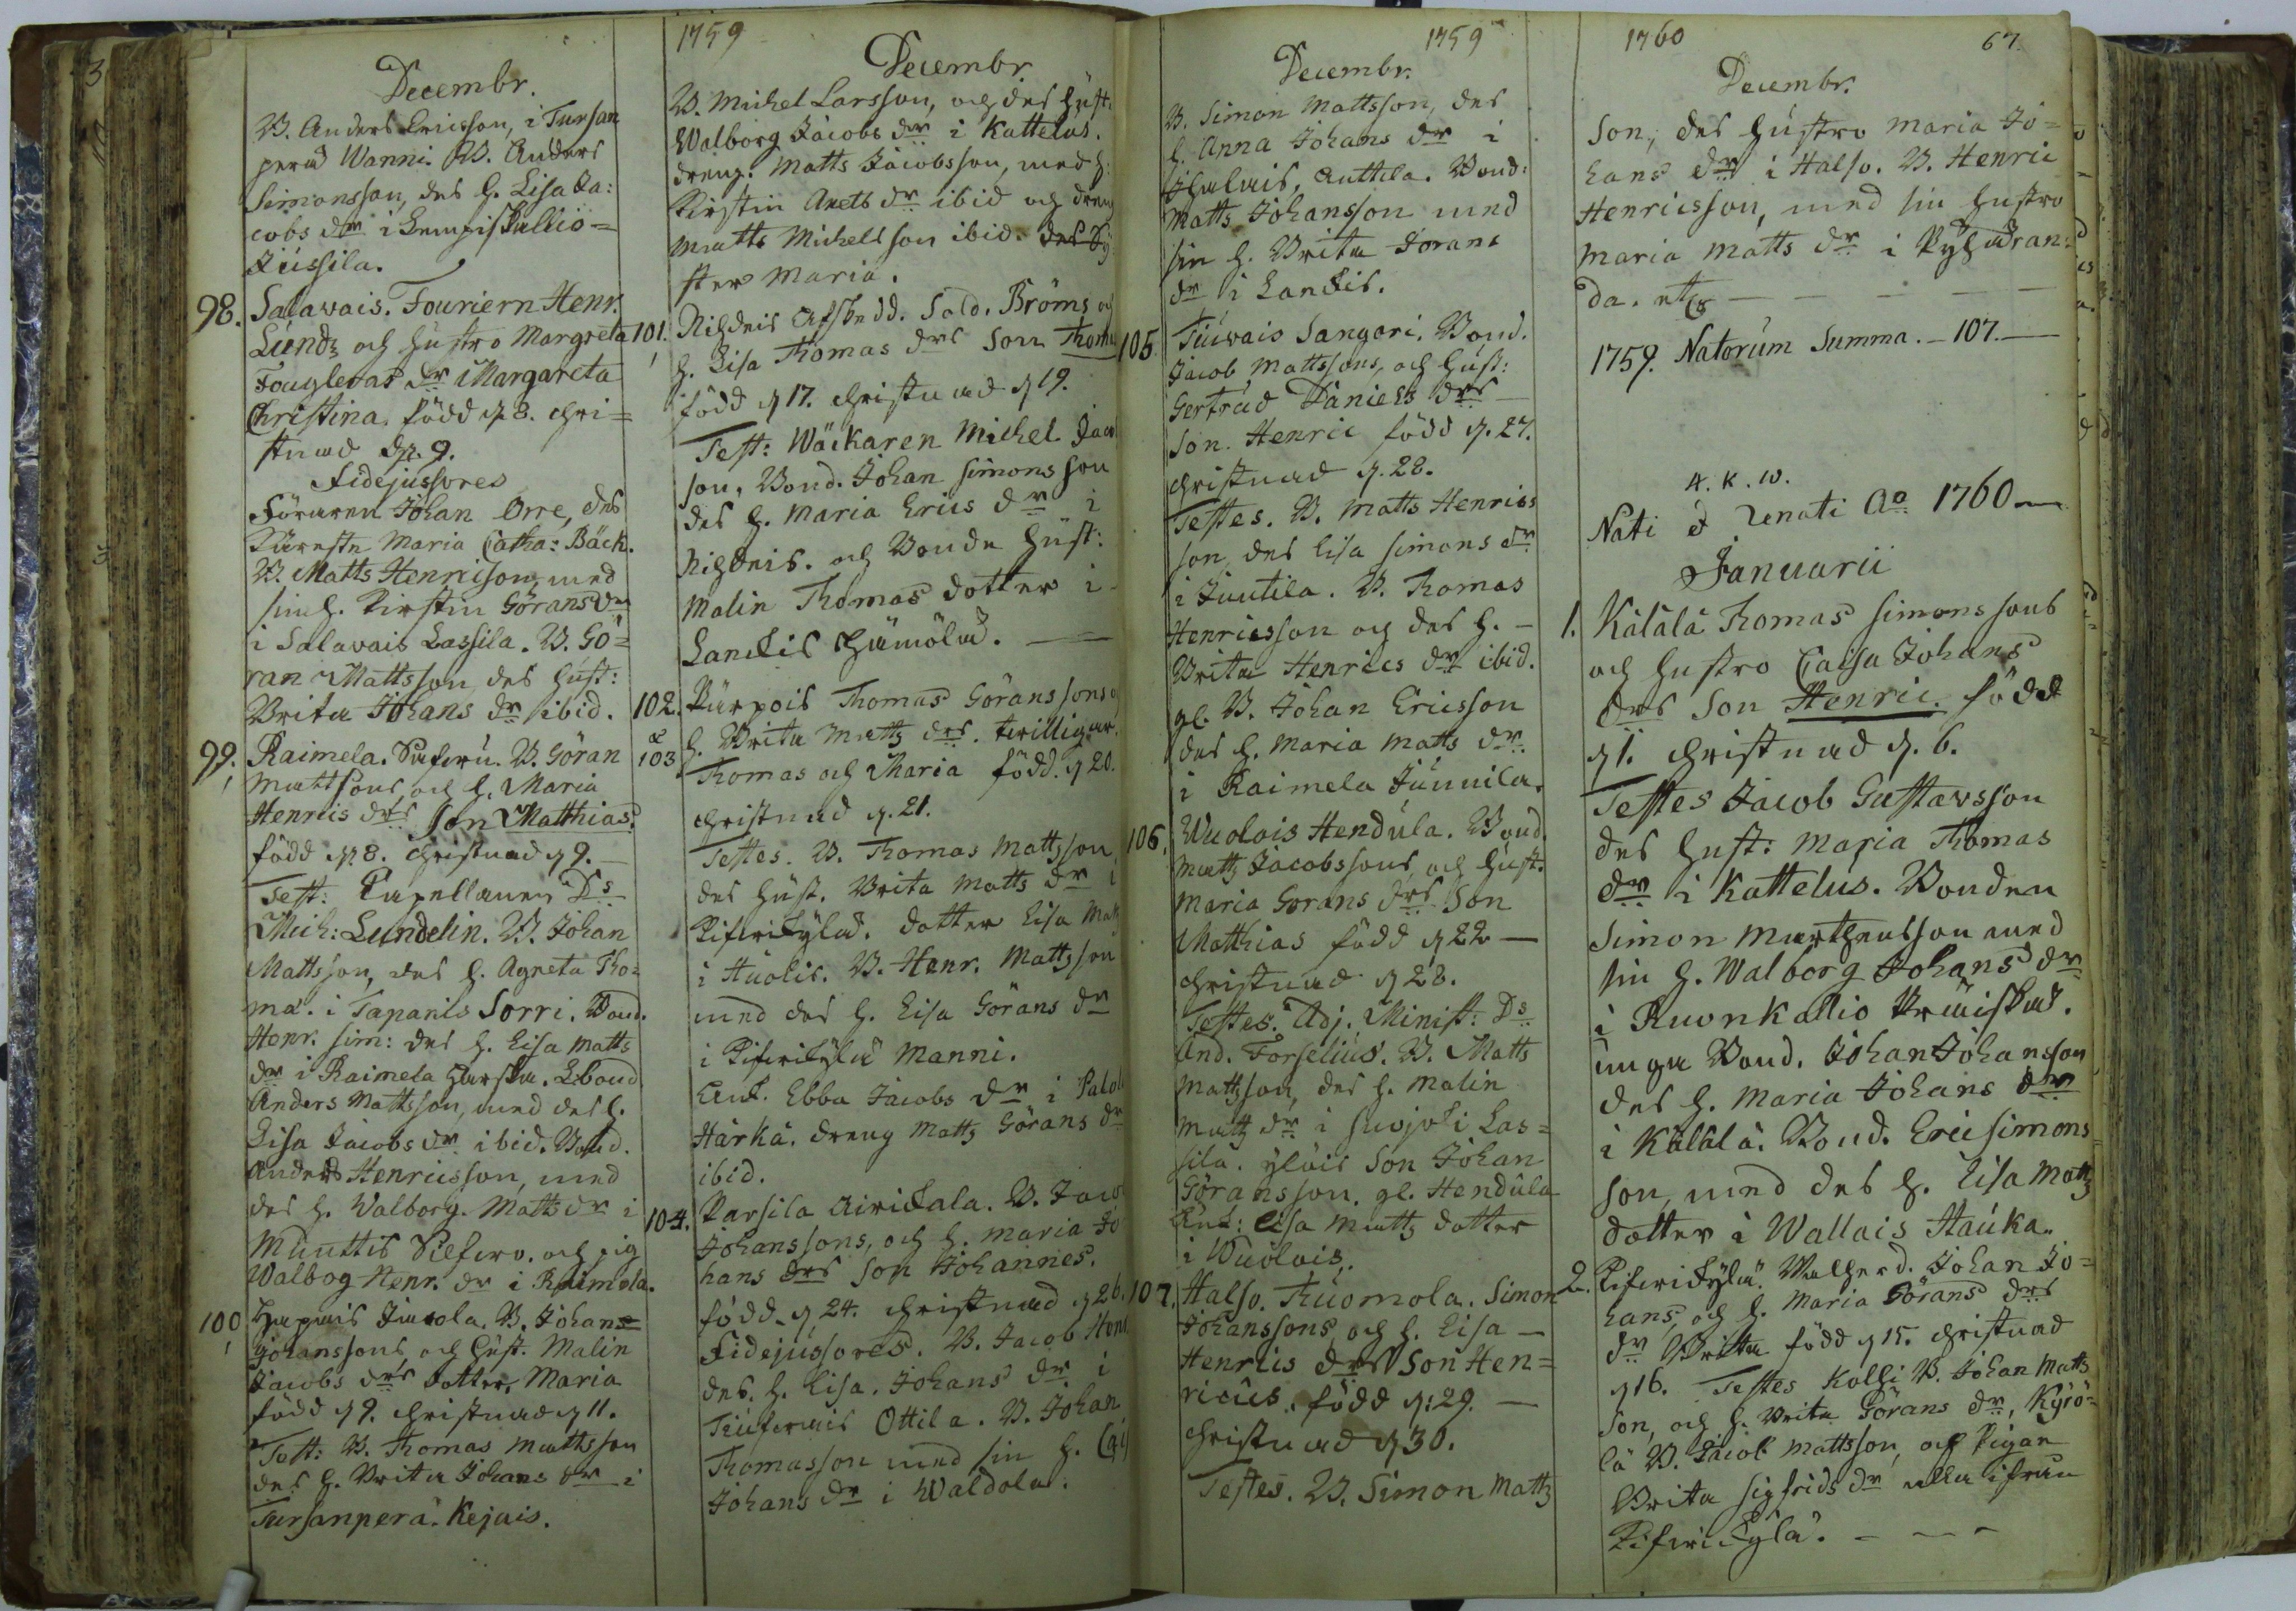 Decembr.
B. Anders Ericsson, i Tursan
perä Wanni. B. Anders
Simonsson, des h. Lisa Ja:
cobs dr i Lempiskallio=
Jussila.
98. Salawais. Fouriern Henr.
Lund, och hustro Margreta
dr Margareta
Christina. född d. 8. chri=
stnad d. 9.
Fidejussores
Föraren Johan Orre, des
Käresta Maria Catha: Bäck.
B. Matts Henricson, med
sin h. Kirstin Görans dr
i Salawais Lassila. B. Gö=
ran Mattsson des hust:
Brita Johans dr ibid.
99. Raimela. B. Göran
Mattsons och h. Maria
Henrics drs Son Matthias.
född d. 8. christnad d. 9.
Test: Capellanen Ds
Mich: Lundelin. B. Johan
Mattsson, des h. Agneta Tho=
ma. i Tapanis Sorri. Bond.
Henr. Sim: des h. Lisa Matts
dr i Raimela
Anders Mattsson, med des h.
Lisa Jacobs dr ibid. Bond.
Anders Henricsson, med
des h. Walborg. Matts dr i
Munttis och pig
Walbog Henr. dr i Raimela.
100 B. Johans=
Johanssons, och hust. Malin
Jacobs drs dotter, Maria
född d 9. christnad d 11.
Test: B. Thomas Mattsson
des h. Brita Johans dr i
Tursanperä. Kejais.
1759
Decembr
B. Michel Larsson, och des hust:
Walborg Jacobs dr i Kattelus.
dreng. Matts Jacobsson, med h:
Kirstin Axels dr ibid och dreng
Matts Michelsson ibid. des Sy
ster Maria.
101. Sold. Bröms och
h. Lisa Thomas drs Son Thomas
född d 17. christnad d 19.
Test: Wäckaren Michel Jacob
son, Bond. Johan Simonsson
des h. Maria Erics dr i
och Bonde hust:
Malin Thomas dotter i
Lanckis Hämölä.
102. Pärpois Thomas Göranssons och
& h. Brita Mattz drs. twillingar.
103. Thomas och Maria född. d 20.
christnad d. 21.
Testes. B. Thomas Mattsson,
des hust. Brita Matts dr i
Piserikylä. dotter Lisa Matts
i Huolis. B. Henr. Mattzson
med des h. Lisa Görans dr
i Piserikylä Manni.
Enk. Ebba Jacobs dr i Palol
Härkä. dreng Mattz Görans dr
ibid.
104. Karsila Airickala. B. Jacob
Johanssons, och h. Maria Jo
hans drs Son Johannes.
född. d 24. christnad d 26.
Fidejussores. B. Jacob Henr
des. h. Lisa. Johans dr i
Ottila. B. Johan
Thomasson med sin h. Cai
Johans dr i Waldola.
1759
Decembr.
B. Simon Mattsson, des
h. Anna Johans dr i
Anttila. Bond:
Matts Johansson med
sin h. Brita Jorans
dr i Lanckis.
105. Tuiwais Sangari. Bond.
Jacob Mattssons, och hust:
Gertrud Daniels drs
Son. Henric född d. 27.
christnad d. 28.
Testes. B. Matts Henrics
son, des Lisa Simons dr
i Juutila. B. Thomas
Henricsson och des h. -
Brita Henrics dr ibid.
gl. B. Johan Ericsson
des h. Maria Matts dr
i Raimela Junnila.
106. Wuolois Hendula. Bond.
Mattz Jacobssons, och hust.
Maria Gorans drs Son
Matthias född d 22 —
christnad d 28.
Testes. Adj. Minist: Ds
And. Forselius. B. Matts
Mattzson, des h. Malin
Mattz dr i Suojoki Las=
sila. ylöis Son Johan
Göransson. gl. Hendula
Enk: Lisa Mattz dotter
i Wuolois.
107. Halso. Tuomola. Simon
Johanssons och h. Lisa —
Henrics drs Son Hen=
ricus. född d. 29. —
christnad d 30.
Testes. B. Simon Mattz
1760
67.
Decembr.
son, des hustro Maria Jo=
hans dr i Halso. B. Henric
Henricsson, med sin hustro
Maria Matts dr i Pyhäran=
da. etc — — — — —
1759. Natorum Summa. — 107. —
H. K. W.
Nati & Renati Ao 1760 —
Januarii
1. Kälälä Thomas Simonssons
och hustro Caisa Johans
drs Son Henric. född
d 1. christnad d. 6.
Testes Jacob Gustawsson
des hust: Maria Thomas
dr i Kattelus. Bonden
Simon Mårthensson med
sin h. Walborg Johans dr
i Ruonkallio
unga Bond. Johan Johansson
des h. Maria Johans dr
i Kälälä. Bond. Eric Simons
son, med des h. Lisa Mattz
dotter i Wallais Hauka.
2. Piserikylä. Johan Jo=
hans, och h. Maria Görans drs
dr Britta född d 15. christnad
d 16. Testes Kolli B. Johan Matts
son, och h. Brita Görans dr, Kyrö=
lä B. Jacob Mattsson, och Pigan
Brita Sigfrids dr alla ifrån
Piserikylä. — — —